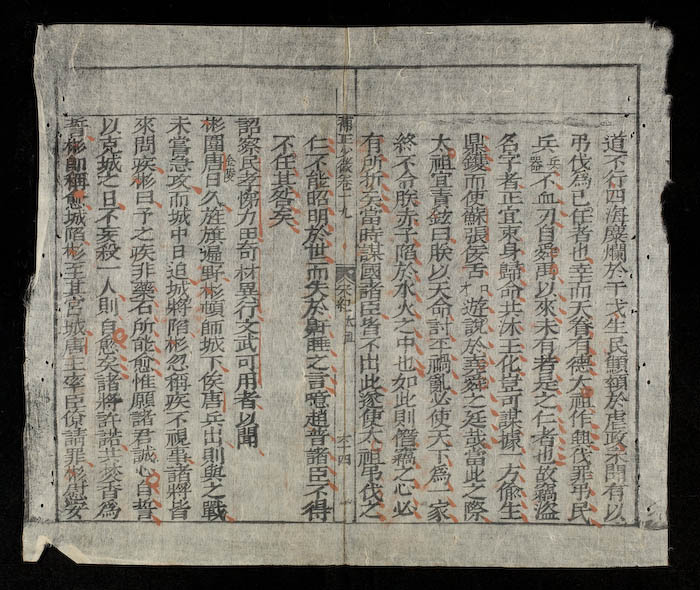 道不行四海糜爛於干戈生民顦顇於虐政不聞有以
弔伐爲己任者也幸而天眷有德太祖作興伐罪弔民
兵兵器不血刃自舜禹以來未有若是之仁者也故竊盜
名字者正宜束身歸命共沐王化豈可謀據一方偸生
鼎鑊而使蘇張佞舌口才遊說於堯舜之廷哉當此之際
太祖宜責鉉曰朕以天命討平禍亂必使天下爲一家
終不令朕赤子陷於水火之中也如此則僭竊之心必
有所折矣當時謀國諸臣皆不出此遂使太祖弔伐之
仁不能昭明於世而失於鼾睡之言噫趙普諸臣不得
不任其咎矣
詔察民孝悌力田奇材異行文武可用者以聞
彬圍唐金陵日久旌旗遍野彬頓師城下俟唐兵出則與之戰
未嘗急攻而城中日迫城將陷彬忽稱疾不視事諸將皆
來問疾彬曰予之疾非藥石所能愈惟願諸君誠心自誓
以克城之日不妄殺一人則自愈矣諸將許諾共焚香爲
誓彬卽稱愈城陷彬至其宮城唐主率臣僚請罪彬慰安